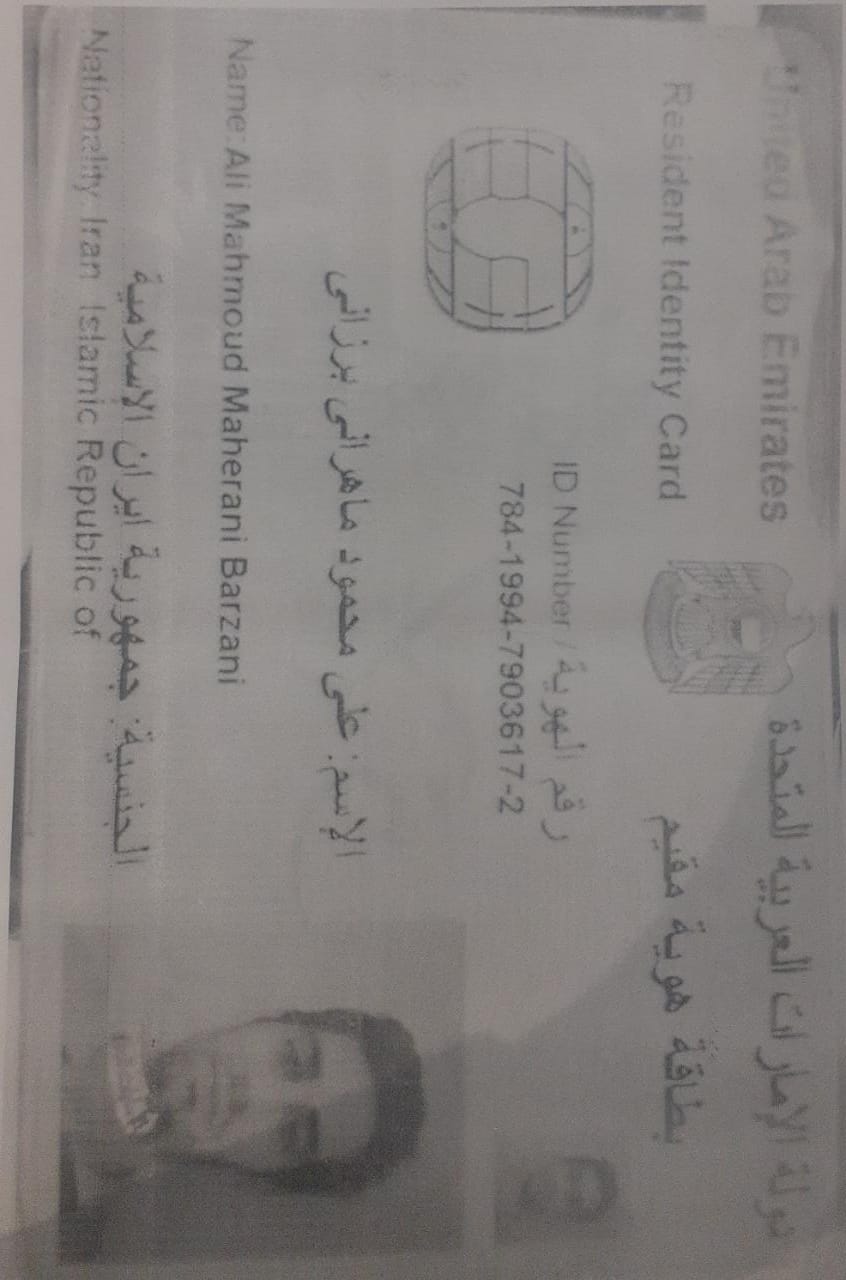 United Arab Emirates
دولة الإمارات العربية المتحدة
Resident Identity Card
بطاقة هوية مقيم
ID Number / رقم الهوية
784-1994-7903617-2
الإسم: على محمود ماهرانى برزانى
Name: Ali Mahmoud Maherani Barzani
الجنسية: جمهورية ايران الإسلامية
Nationality: Iran Islamic Republic of